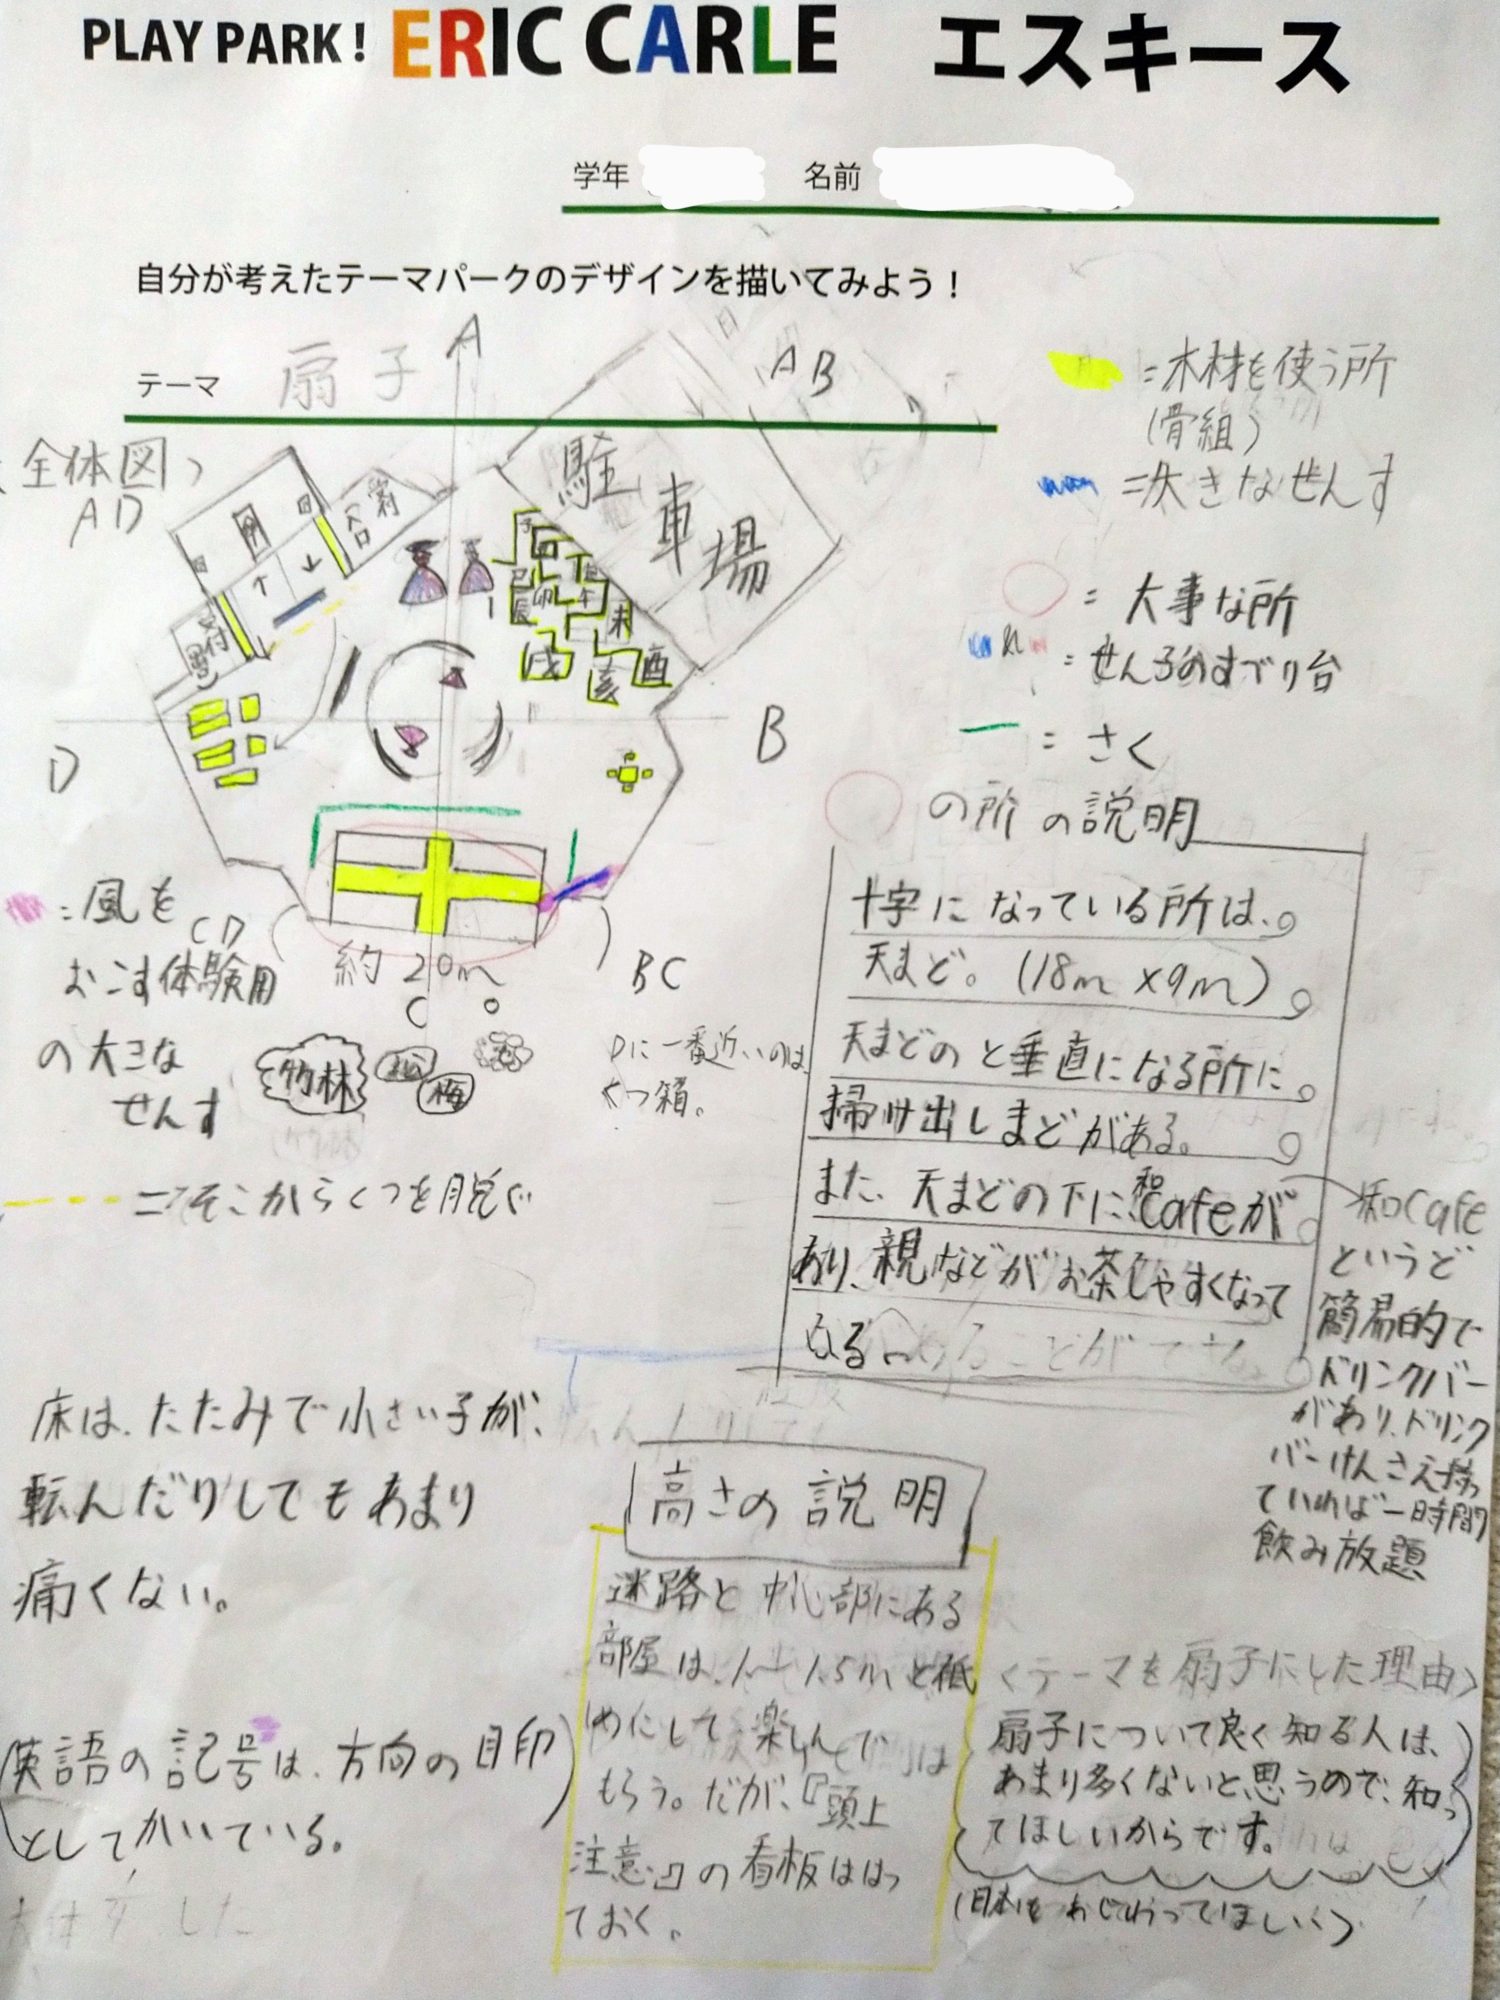 PLAY PARK! ERIC CARLE エスキース
学年 名前
自分が考えたテーマパークのデザインを描いてみよう!
テーマ 扇子
A
AB
〈全体図〉
AD
駐車場
受付
入口
受付
子
丁
巳
卯
午
辰
未
戌
亥
酉
D
B
=木材を使う所
(骨組)
=大きなせんす
= 大事な所
= せん子のすべり台
= さく
の所の説明
十字になっている所は、
天まど。(18m×9m)
天まどのと垂直になる所に
掃け出しまどがある。
また、天まどの下に和cafeが
あり、親などがお茶しやすくなって
いる。
和cafe
というど
簡易的で
ドリンクバー
があり、ドリンク
バーけんさえ持っ
ていれば一時間
飲み放題
=風を
おこす体験用
の大きな
せんす
CD
約20m
C
BC
竹林
松
梅
Dに一番近いのは、
くつ箱。
=そこからくつを脱ぐ
床は、たたみで小さい子が、
転んだりしてもあまり
痛くない。
高さの説明
迷路と中心部にある
部屋は、1〜1.5mと低
めにして、楽しんで
もらう。だが、『頭上
注意』の看板ははっ
ておく。
(英語の記号は、方向の目印
としてかいている。)
〈テーマを扇子にした理由〉
扇子について良く知る人は、
あまり多くないと思うので、知っ
てほしいからです。